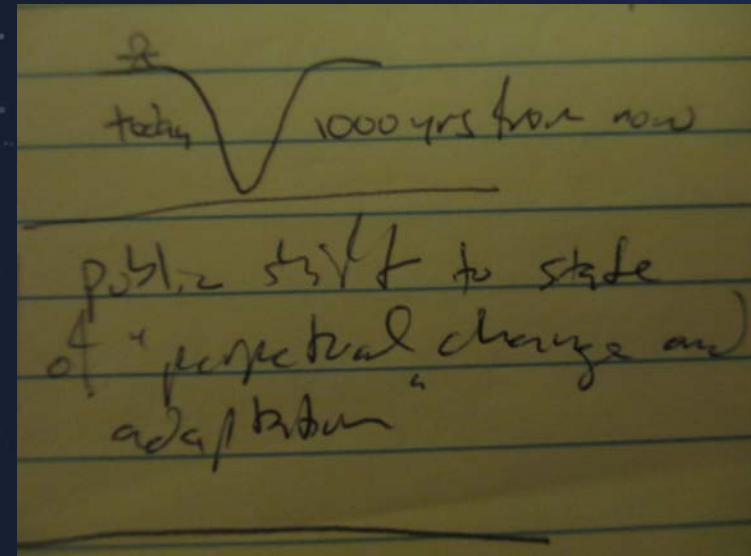 today
1000 yrs from now
public shift to state
of "perpetual change and
adaptation"